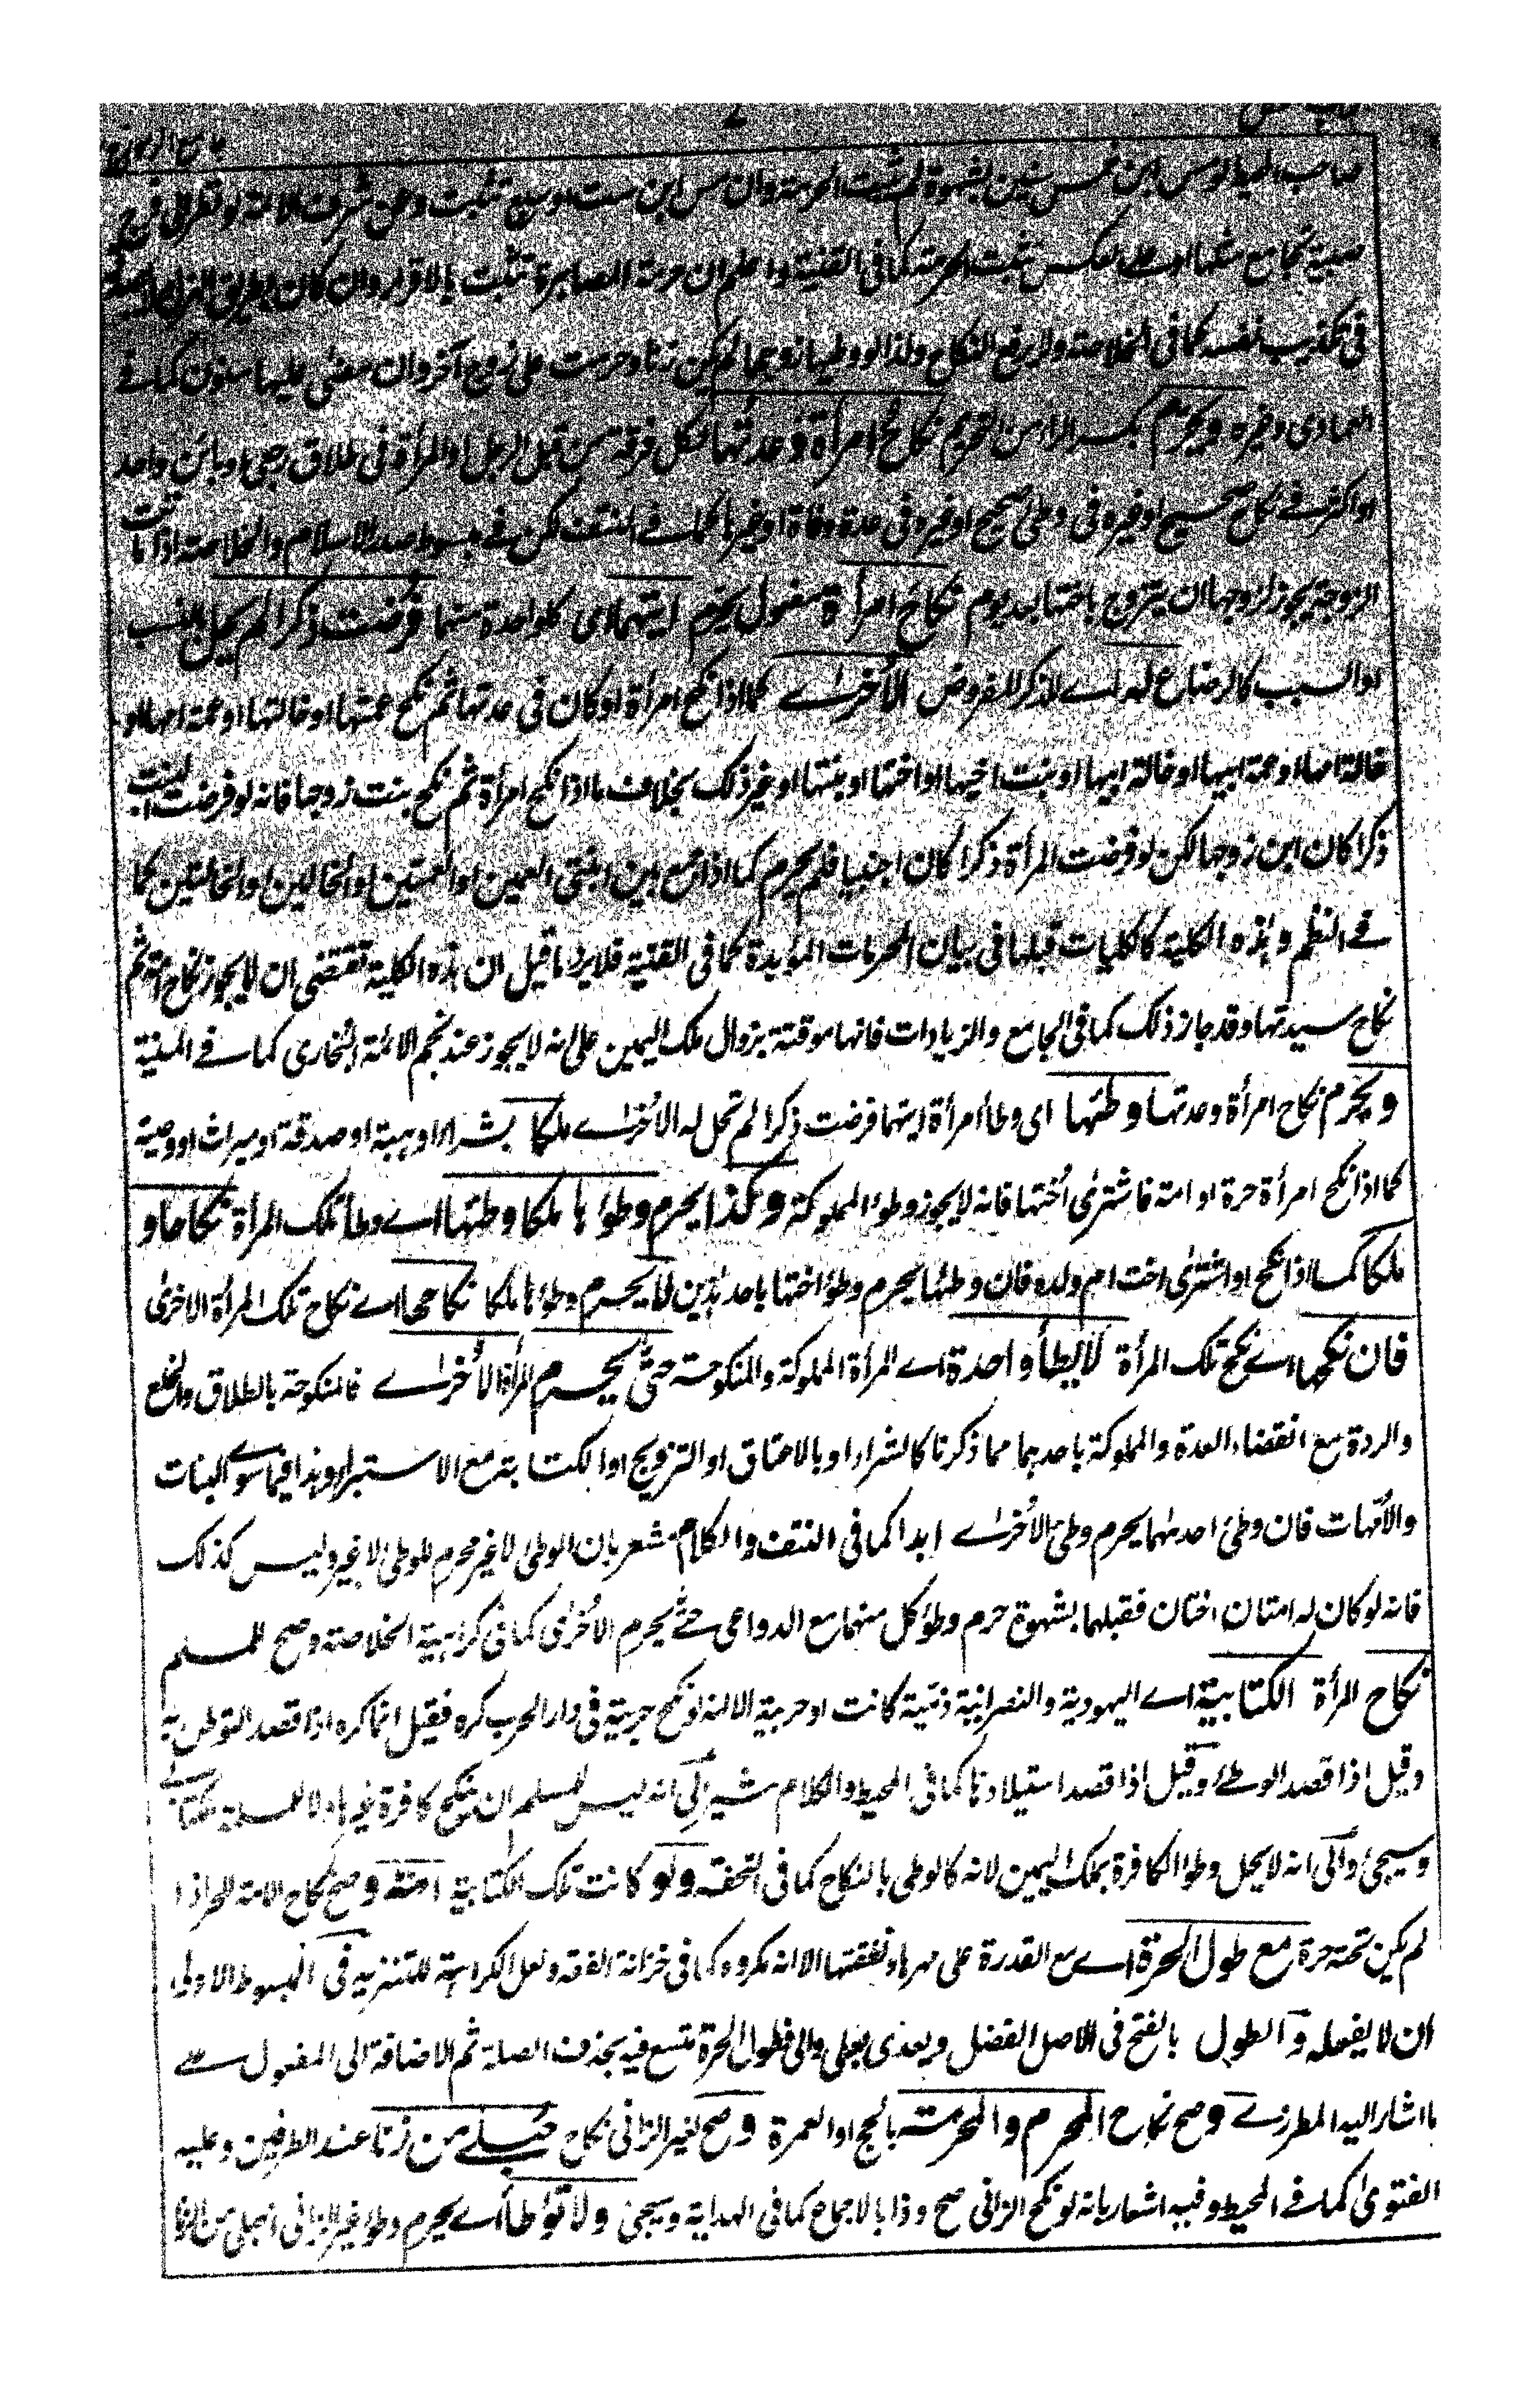 جامع الرموز
صاحب المحيط لو مس ابن خمس سنين بشهوة لم تثبت الحرمة وان مس ابن ست او سبع تثبت وعن شرف الائمة لو نظر الى فرج
صبية تجامع مثلها او على العكس تثبت الحرمة كما فى القنية واعلم ان حرمة المصاهرة تثبت بالاقرار وان كان بطريق الهزل
فى تكذيب نفسه كما فى الخلاصة ولا يرفع النكاح ولذا لو وطيها زوجها لم يكن زنا وحرمت على زوج آخر وان مضى عليها سنون كما فے
العمادى وغيره ويحرم بكسر الراء من التحريم نكاح امرأة وعدتها لكل فرقة من قبل الرجل او المرأة فى طلاق رجعى او بائن واحد
او اكثر فے نكاح صحيح او غيره وفى وطئ صحيح او غيره وفى عدة وفاة او غيرها كما فے النتف لكن فے مبسوط صدر الاسلام والخلاصة اذا ماتت
الزوجة يجوز لزوجها ان يتزوج باختها بعد يوم نكاح امرأة مفعول يحرم ايتهما اى كلواحدة منهما فرضت ذكرا لم يحل بالنسب
او السبب كالرضاع له اے لذكر المفروض الاخرٰے كما اذا نكح امرأة او كان فى عدتها ثم نكح عمتها او خالتها او عمة امها او
خالة امها او عمة ابيها او خالة ابيها او بنت اخيها او اختها او بنتها او غير ذلك بخلاف ما اذا نكح امرأة ثم نكح بنت زوجها فانه لو فرضت البنت
ذكرا كان ابن زوجها لكن لو فرضت المرأة ذكرا كان اجنبيا فلم يحرم كما اذا جمع بين ابنتى العمين او العمتين او الخالين او الخالتين كما
فے النظم وهذه الكلية كالكليات قبلها فى بيان المحرمات المؤبدة كما فى القنية فلا يرد ما قيل ان هذه الكلية تقتضى ان لا يجوز نكاح امة ثم
نكاح سيدتها وقد جاز ذلك كما فى الجامع والزيادات فانها موقتة بزوال ملك اليمين على انه لا يجوز عند نجم الائمة البخارى كما فے المنية
ويحرم نكاح امرأة وعدتها وطئها اى وطأ امرأة ايتهما فرضت ذكرا لم تحل له الاخرٰے ملكا بشراء او هبة او صدقة او ميراث او وصية
كما اذا نكح امرأة حرة او امة فاشترى اختها فانه لا يجوز وطؤ المملوكة وكذا يحرم وطؤها ملكا وطئها اے وطأ تلك المرأة نكاحا و
ملكا كما اذا نكح او اشترى اخت ام ولده فان وطئها يحرم وطؤ اختها باحد هذين لا يحرم وطؤها ملكا نكاحها اے نكاح تلك المرأة الاخرى
فان نكحها اے نكح تلك المرأة لا يطأ واحدة اے المرأة المملوكة والمنكوحة حتى يحرم المرأة الاخرٰے فالمنكوحة بالطلاق والخلع
والردة مع انقضاء العدة والمملوكة باحد هما مما ذكرنا كالشراء او بالاعتاق او التزويج او الكتابة مع الاستبراء وهذا فيما سوے البنات
والامهات فان وطئ احدٰهما يحرم وطئ الاخرٰے ابدا كما فى النتف والكلام مشعر بان الوطئ لا غير محرم للوطئ لا غير وليس كذلك
فانه لو كان له امتان اختان فقبلهما بشهوة حرم وطؤ كل منهما مع الدواعى حتے يحرم الاخرى كما فى كراهية الخلاصة وصح للمسلم
نكاح المرأة الكتابية اے اليهودية والنصرانية ذمية كانت او حربية الا انه لو نكح حربية فى دار الحرب كره فقيل انما كره اذا قصد التوطن به
وقيل اذا قصد الوطئ وقيل اذا قصد استيلادها كما فى المحيط والكلام مشير الى انه ليس للمسلم ان ينكح كافرة غيرها ولا للمسلمة كتابى
وسيجئ والى انه لا يحل وطؤ الكافرة بملك اليمين لانه كالوطى بالنكاح كما فى التحفة ولو كانت تلك الكتابية امة وصح نكاح الامة للحر اذا
لم يكن تحته حرة مع طول الحرة اے مع القدرة على مهرها ونفقتها الا انه مكروه كما فى خزانة الفقه ولعل الكراهة للتنزيه فى المبسوط الاولى
ان لا يفعله و الطول بالفتح فى الاصل الفضل ويعدى بعلى والى فطول الحرة متسع فيه بحذف الصلة ثم الاضافة الى المفعول علے
ما اشار اليه المطرزے وصح نكاح المحرم والمحرمة بالحج او العمرة وصح لغير الزانى نكاح حبلے من زنا عند الطرفين وعليه
الفتوى كما فے المحيط وفيه اشعار بانه لو نكح الزانى صح وذا بالاجماع كما فى الهداية وسيجئ ولا توطأ اے يحرم وطؤ غير الزانى الحبلى من الزنا